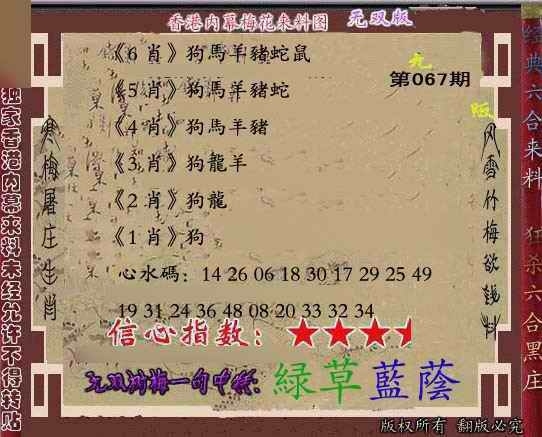 香港内幕梅花来料图 元双版
第067期
《6 肖》狗馬羊豬蛇鼠
《5 肖》狗馬羊豬蛇
《4 肖》狗馬羊豬
《3 肖》狗龍羊
《2 肖》狗龍
《1 肖》狗
心水碼：14 26 06 18 30 17 29 25 49
19 31 24 36 48 08 20 33 32 34
信心指数：
綠草藍蔭
独家香港内幕来料未经允许不得转贴
寒梅屠庄生肖
风雪竹梅欲钱料
经典六合来料
狂杀六合黑庄
版权所有 翻版必究